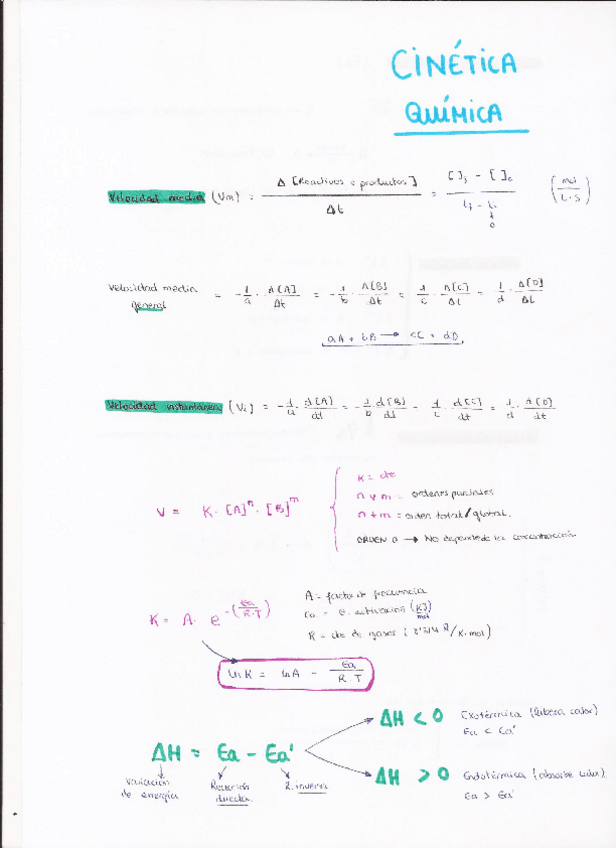 CINÉTICA
QUÍMICA
Velocidad media (Vm) = Δ [Reactivos o productos] / Δt = ([ ]f - [ ]o) / (tf - ti) (mol / L·s)
0
Velocidad media general = -1/a · Δ[A]/Δt = -1/b · Δ[B]/Δt = 1/c · Δ[C]/Δt = 1/d · Δ[D]/Δt
aA + bB → cC + dD
Velocidad instantánea (Vi) = -1/a · d[A]/dt = -1/b · d[B]/dt = 1/c · d[C]/dt = 1/d · d[D]/dt
K = cte
V = K · [A]^n · [B]^m
n y m = ordenes parciales
n + m = orden total / global.
ORDEN 0 → No depende de la concentración
A = factor de frecuencia
K = A · e^-(Ea/R·T)
Ea = e. activación (KJ/mol)
R = cte de gases (8'314 J/K·mol)
ln K = ln A - Ea/R·T
ΔH < 0 Exotérmica (libera calor)
Ea < Ea'
ΔH = Ea - Ea'
Variación de energía
Reacción directa
R. inversa
ΔH > 0 Endotérmica (absorbe calor)
Ea > Ea'